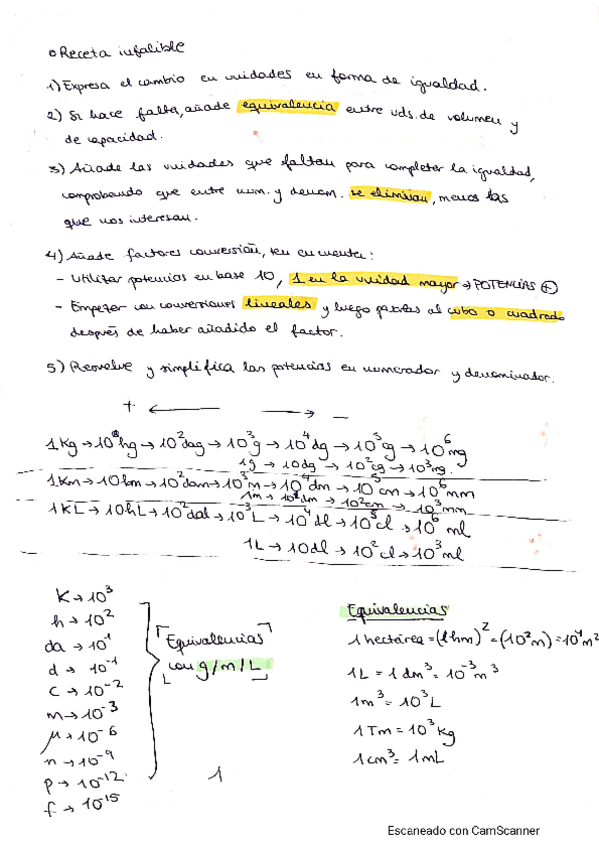 o Receta infalible
1) Expresa el cambio en unidades en forma de igualdad.
2) Si hace falta, añade equivalencia entre uds. de volumen y
de capacidad.
3) Añade las unidades que faltan para completar la igualdad,
comprobando que entre num. y denom. se eliminan, menos las
que nos interesan.
4) Añade factores conversión, ten en cuenta:
- Utilizar potencias en base 10, 1 en la unidad mayor → POTENCIAS (+)
- Empezar con conversiones lineales y luego pasarlas al cubo o cuadrado
después de haber añadido el factor.
5) Resuelve y simplifica las potencias en numerador y denominador.
+ ← → −
1Kg → 10hg → 10²dag → 10³g → 10⁴dg → 10⁵cg → 10⁶mg
1g → 10dg → 10²cg → 10³mg.
1Km → 10hm → 10²dam → 10³m → 10⁴dm → 10⁵cm → 10⁶mm
1m → 10dm → 10²cm → 10³mm
1KL → 10hL → 10²daL → 10³L → 10⁴dl → 10⁵cl → 10⁶ml
1L → 10dl → 10²cl → 10³ml
K → 10³
h → 10²
da → 10¹
d → 10⁻¹
c → 10⁻²
m → 10⁻³
μ → 10⁻⁶
n → 10⁻⁹
p → 10⁻¹²
f → 10¹⁵
Equivalencias
con g/m/L
1
Equivalencias
1 hectárea = (1hm)² = (10²m) = 10⁴m²
1L = 1dm³ = 10⁻³m³
1m³ = 10³L
1Tm = 10³Kg
1cm³ = 1mL
Escaneado con CamScanner